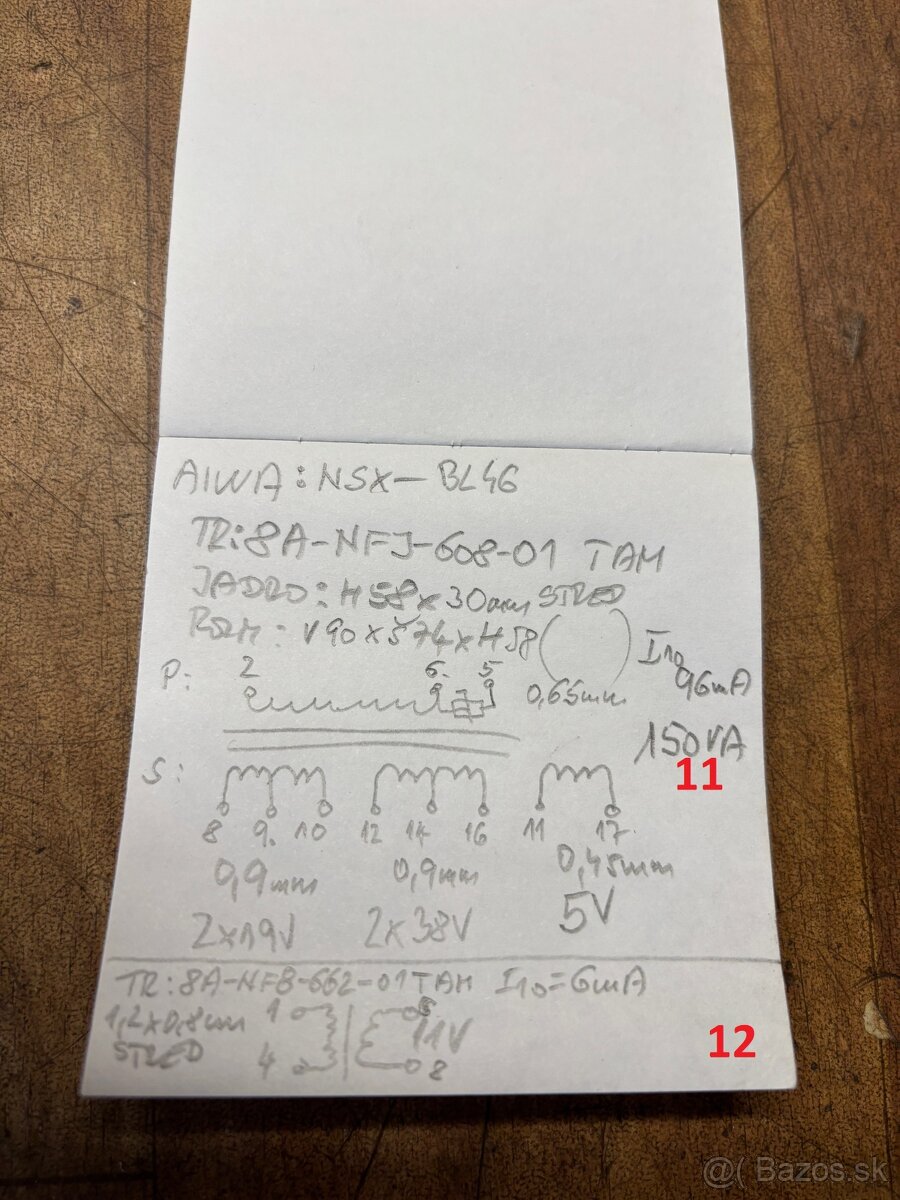 AIWA: NSX-BL46
TR: 8A-NFJ-608-01 TAM
JADRO: H58x30mm STRED
ROZM: V90xŠ74xH58
I10
96mA
P: 2 6. 5
0,65mm
150VA
11
S:
8 9. 10 12 14 16 11 17
0,9mm 0,9mm 0,45mm
2x19V 2x38V 5V
TR: 8A-NF8-662-01 TAM I10=6mA
1,2x0,8cm 1 5
11V
STRED 4 8
12
@( Bazos.sk